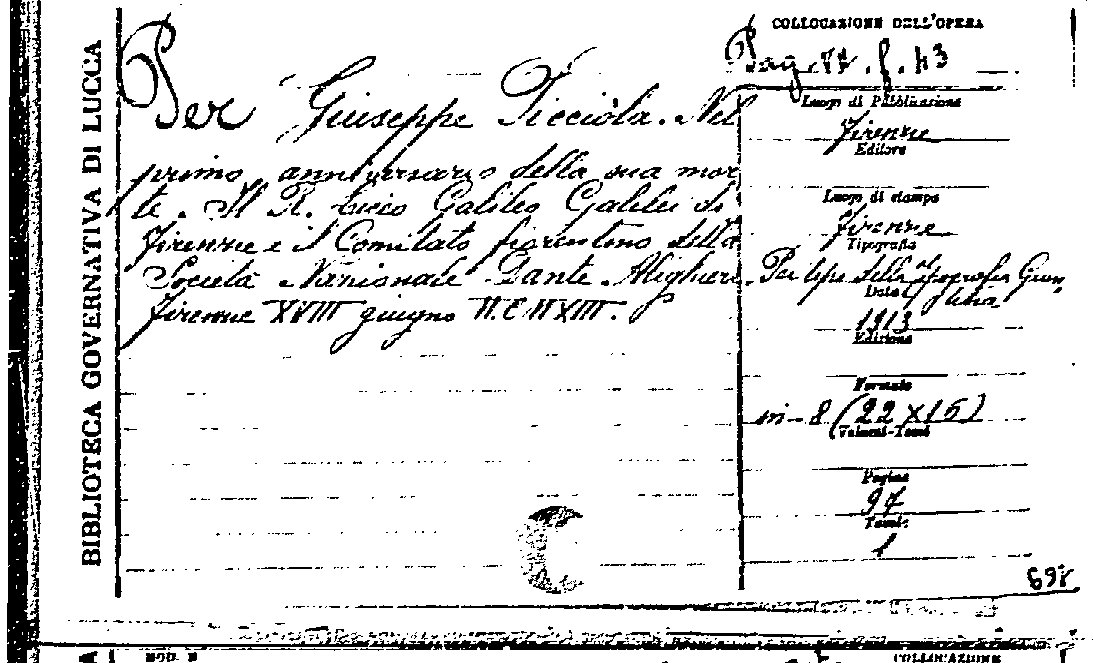 BIBLIOTECA GOVERNATIVA DI LUCCA
Per Giuseppe Picciòla. Nel
primo anniversario della sua mor
te. Il R. Liceo Galileo Galilei di
Firenze e il Comitato fiorentino della
Società Nazionale Dante Alighieri.
Firenze XVIII giugno
COLLOCAZIONE DELL'OPERA
Luogo di Pubblicazione
Firenze
Editore
Luogo di stampa
Firenze
Tipografia
Pei tipi della tipografia Giun
tina
Data
1913
Edizione
Formato
in-8 (22x15)
Volumi-Tomi
Pagine
97
Tavole
1
MOD. N
COLLOCAZIONE